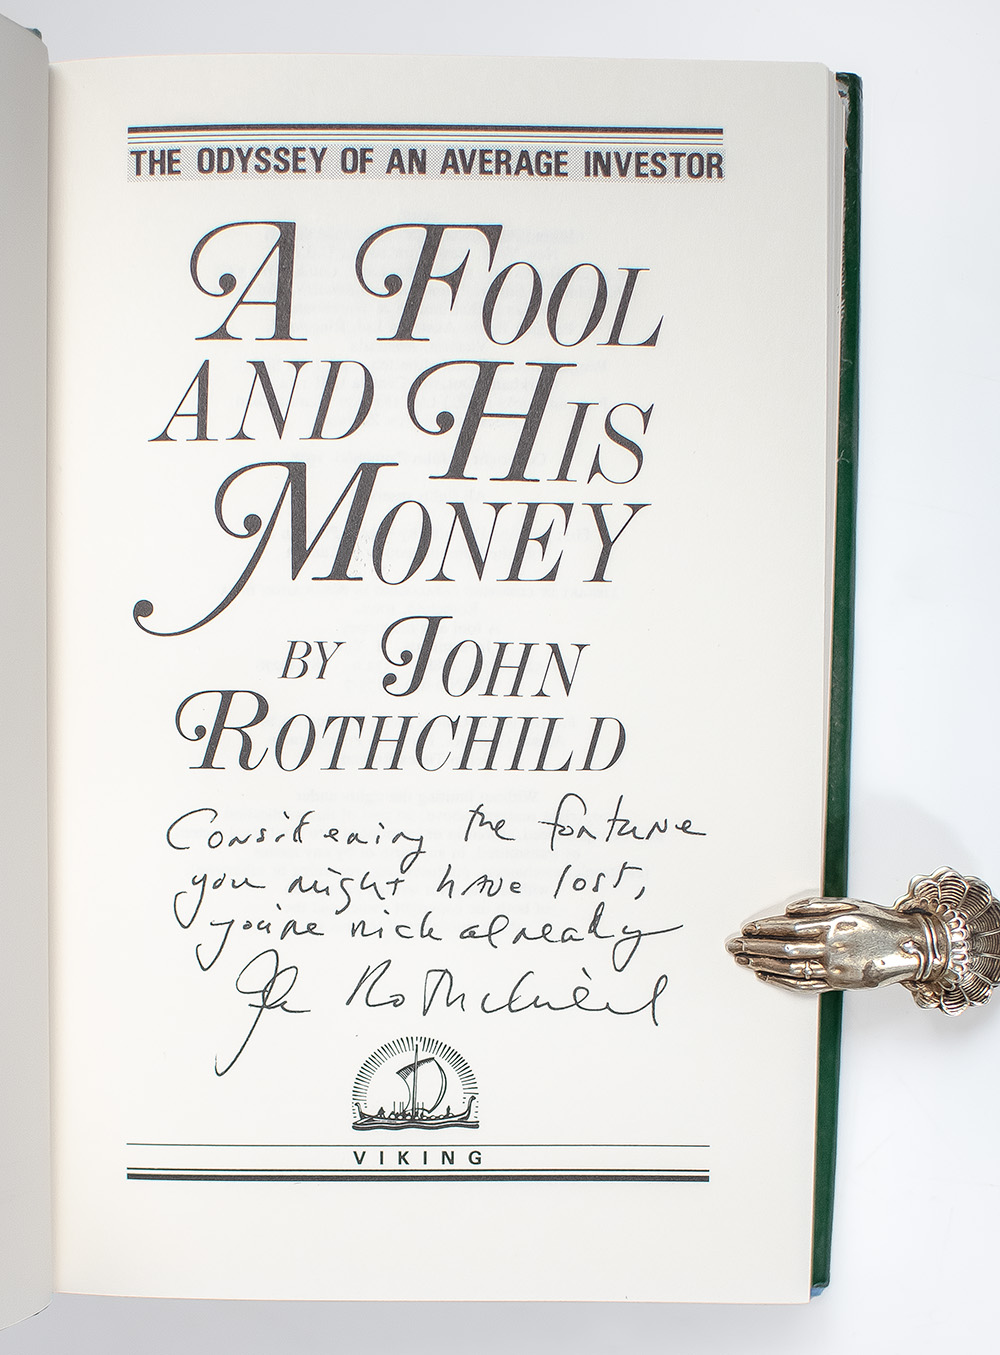 THE ODYSSEY OF AN AVERAGE INVESTOR
A FOOL
AND HIS
MONEY
BY JOHN
ROTHCHILD
Considering the fortune
you might have lost,
you're rich already
John Rothchild
VIKING